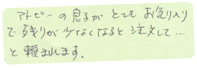 アトピーの息子がとてもお気り入り
で残りが少なくなると注文して…
と頼まれます。